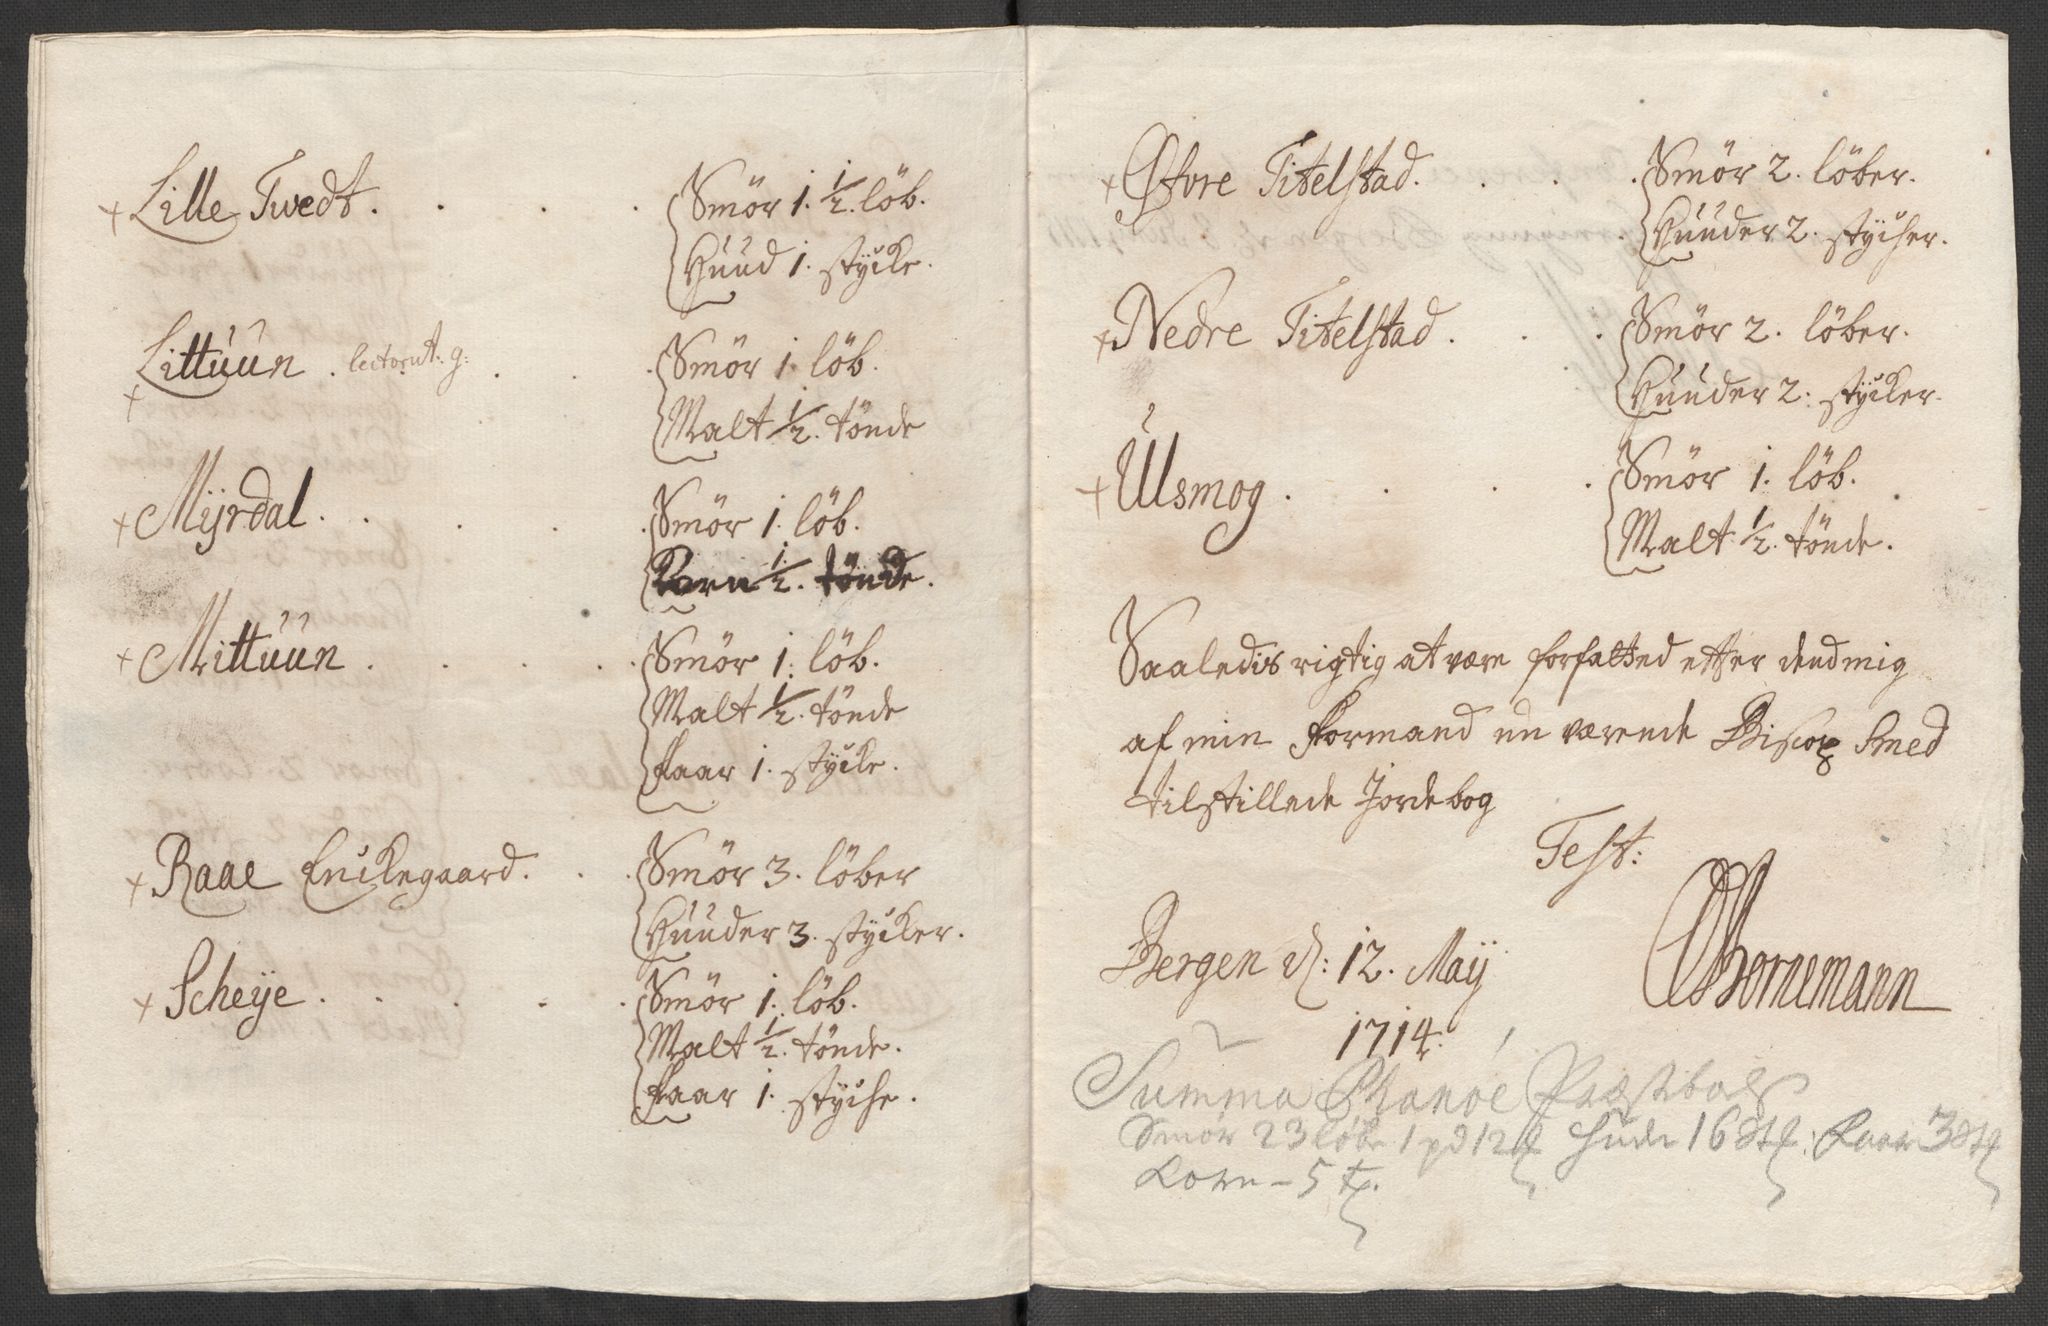 + Lille Twedt . . . . Smör 1. 1/2. löb.
Huud 1. stÿcke.
+ Littuun . lectorat. g: . . . Smör 1. löb.
Malt 1/2. tönde
+ Mÿrdal . . . . . Smör 1. löb.
Korn 1/2. tönde.
+ Mittuun . . . . . Smör 1. löb.
Malt 1/2. tönde
Faar 1. stÿcke.
+ Raae Enckegaard . . . Smör 3. löber
Huuder 3. stÿcker.
+ Scheÿe . . . . . Smör 1. löb.
Malt 1/2. tönde.
Faar 1. stÿche.
+ Øfvre Titelstad . . . . Smör 2. löber.
. Huuder 2. stÿcher.
+ Nedre Titelstad . . . Smör 2. löber.
Huuder 2. stÿcker.
+ Ulsmog . . . . Smör 1. löb.
Malt 1/2. tönde.
Saaledis rigtig at være forfatted efter dend mig
af min Formand nu værende Biscop Smed
tilstillede Jordebog
Test:
Bergen d: 12. Maÿ
1714.
Bornemann
Summa Præstbols
Smör 23 løbe 1 pd 12 Hude 16 stk. Faar 3 stk
Korn – 5 t